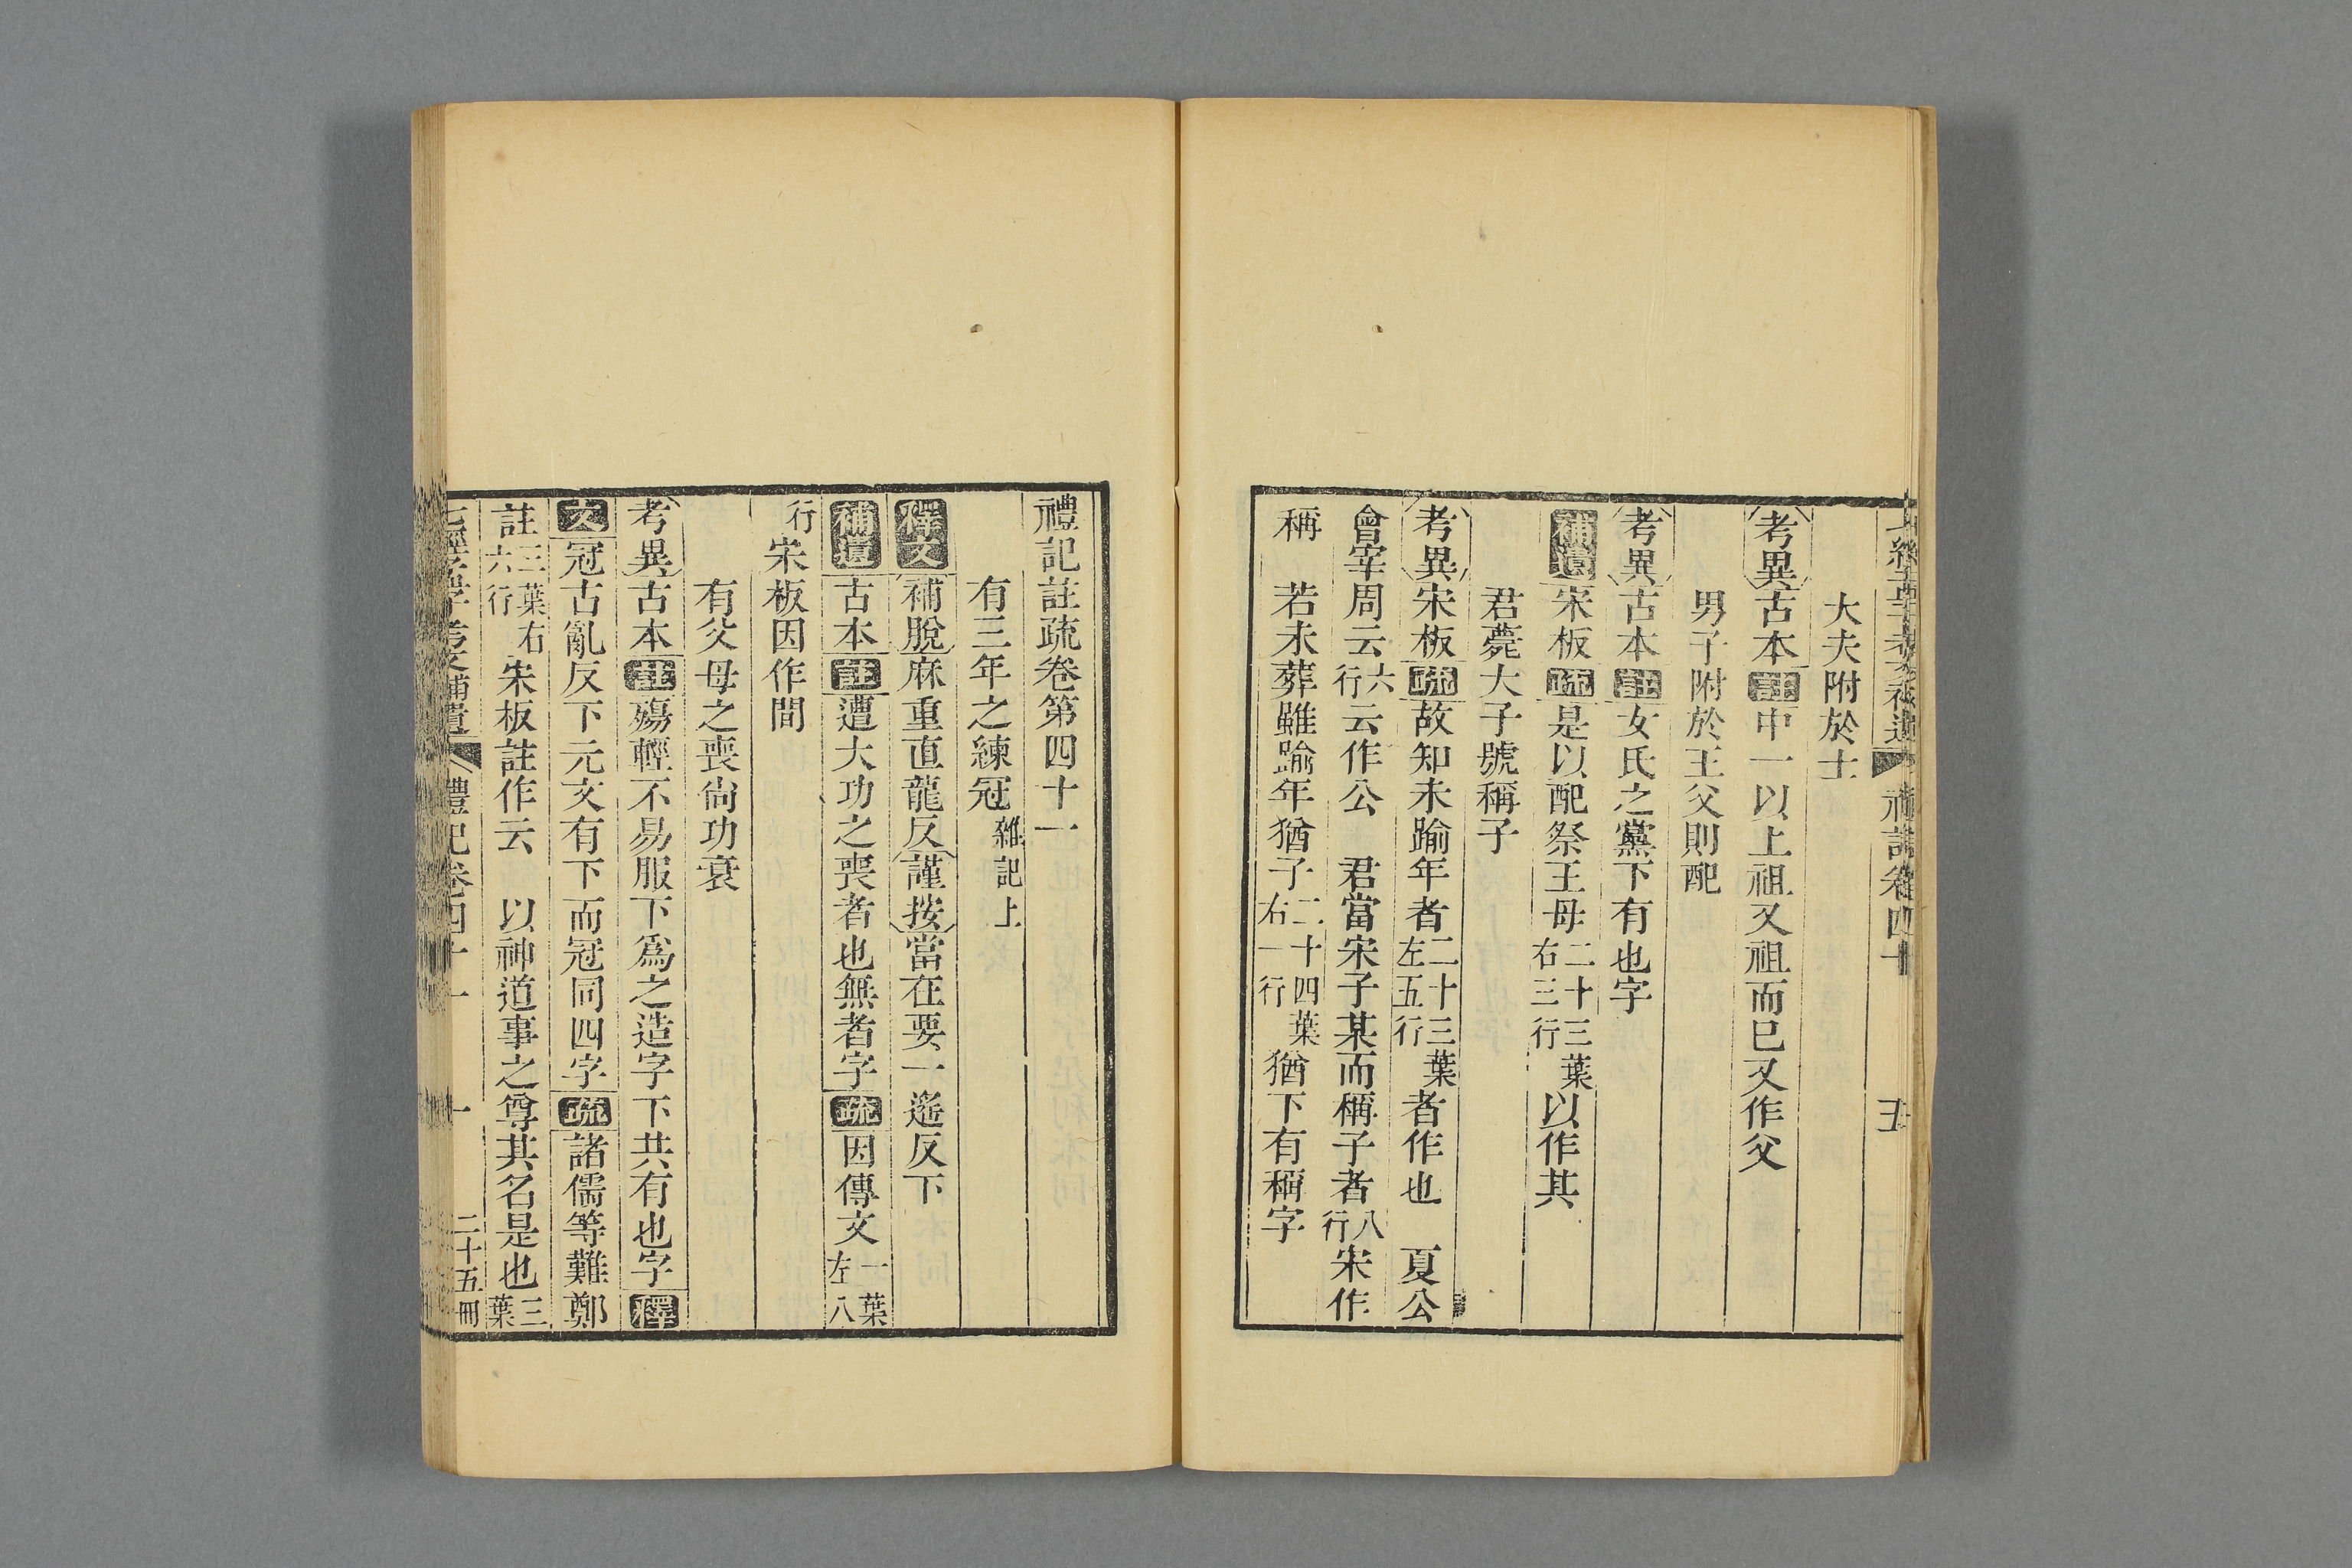 七經孟子考文補遺 禮記卷四十 五
大夫附於士
考異古本註中一以上祖又祖而已又作父
男子附於王父則配
考異古本註女氏之黨下有也字
補遺宋板疏是以配祭王母二十三葉右三行以作其
君薨大子號稱子
考異宋板疏故知未踰年者二十三葉左五行者作也 夏公
會宰周云六行云作公 君當宋子某而稱子者八行宋作
稱 若未葬雖踰年猶子二十四葉右一行猶下有稱字
禮記註疏卷第四十一
有三年之練冠雜記上
釋文補脫麻重直龍反謹按當在要一遙反下
補遺古本註遭大功之喪者也無者字疏因傳文一葉左八
行宋板因作間
有父母之喪尚功衰
考異古本註殤輕不易服下爲之造字下共有也字釋
文冠古亂反下元文有下而冠同四字疏諸儒等難鄭
註三葉右六行宋板註作云 以神道事之尊其名是也三葉
七經孟子考文補遺 禮記卷四十一 一 二十五冊